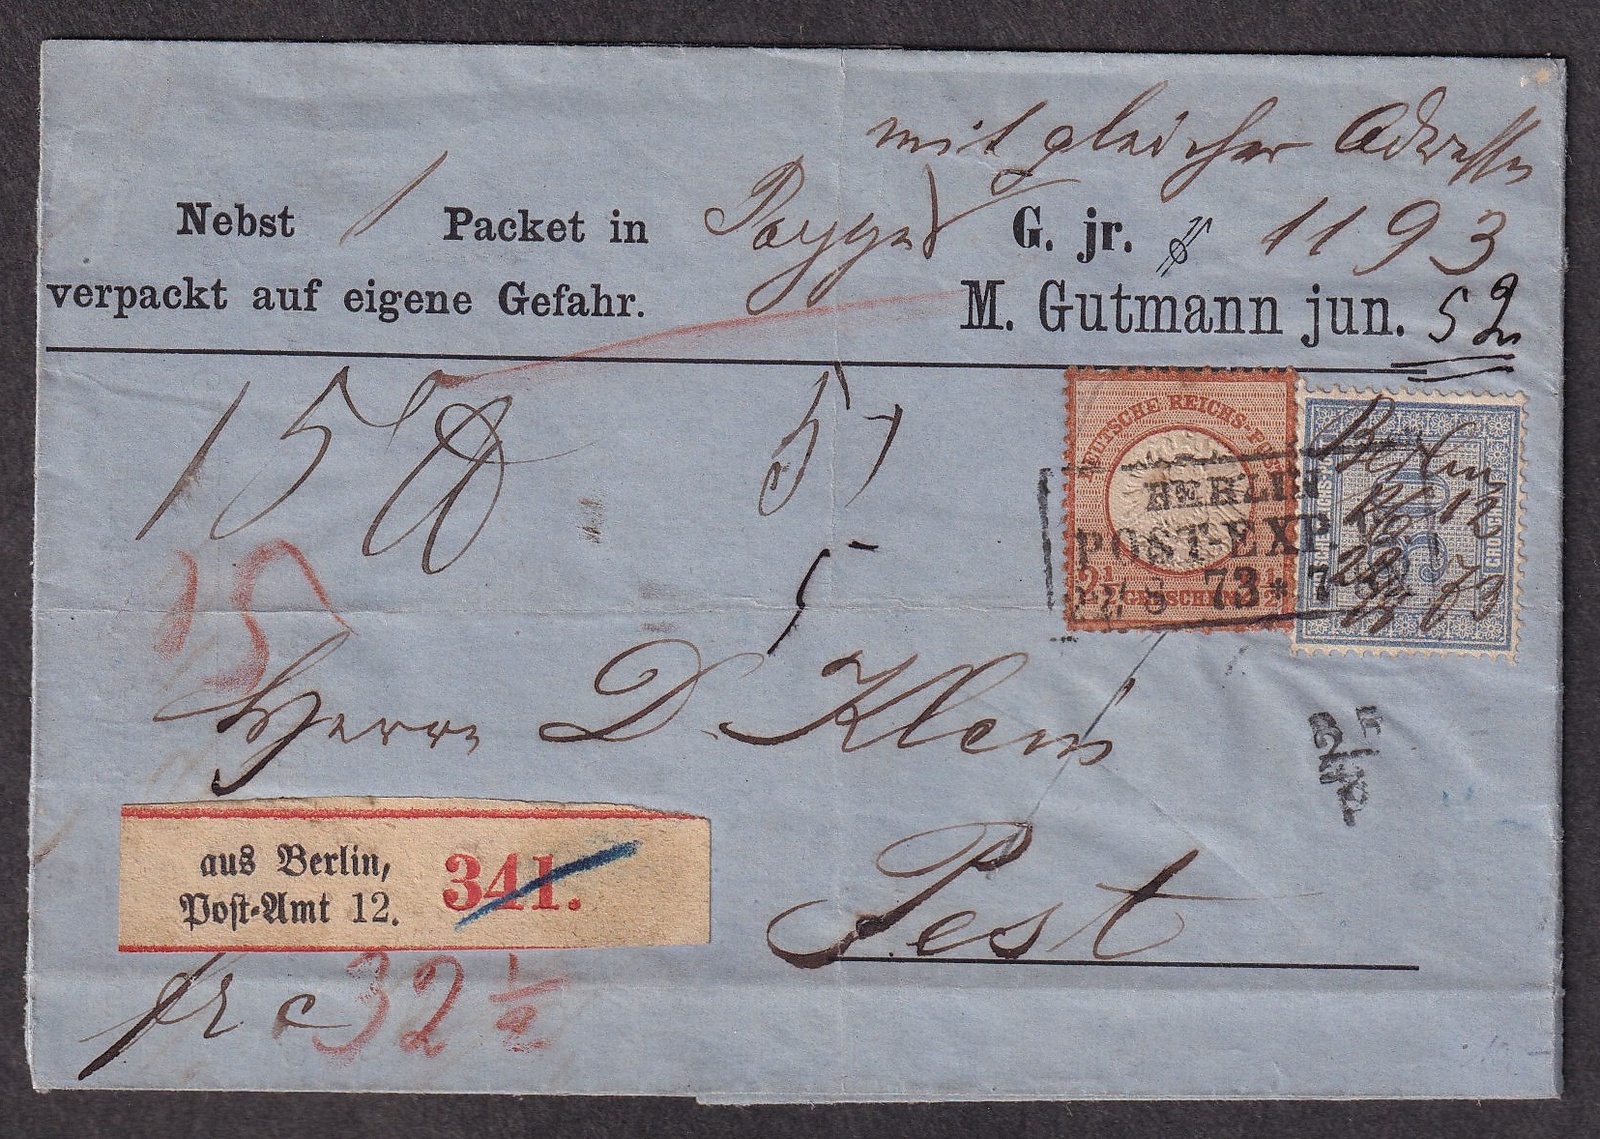 mit gleicher Adresse
Nebst 1 Packet in G. jr. # 1193
verpackt auf eigene Gefahr. M. Gutmann jun. 52
15 5
DEUTSCHE REICHS-POST
2½ GROSCHEN 2½
BERLIN
POST-EXP. 12
73 * 7
Berlin
12
73
15
Herrn D. Klein
aus Berlin,
Post-Amt 12. 341.
Pest
frc 32 ½